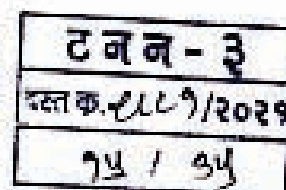 टनन - ३
दस्त क. ९८८१/२०२१
१५ / ३५